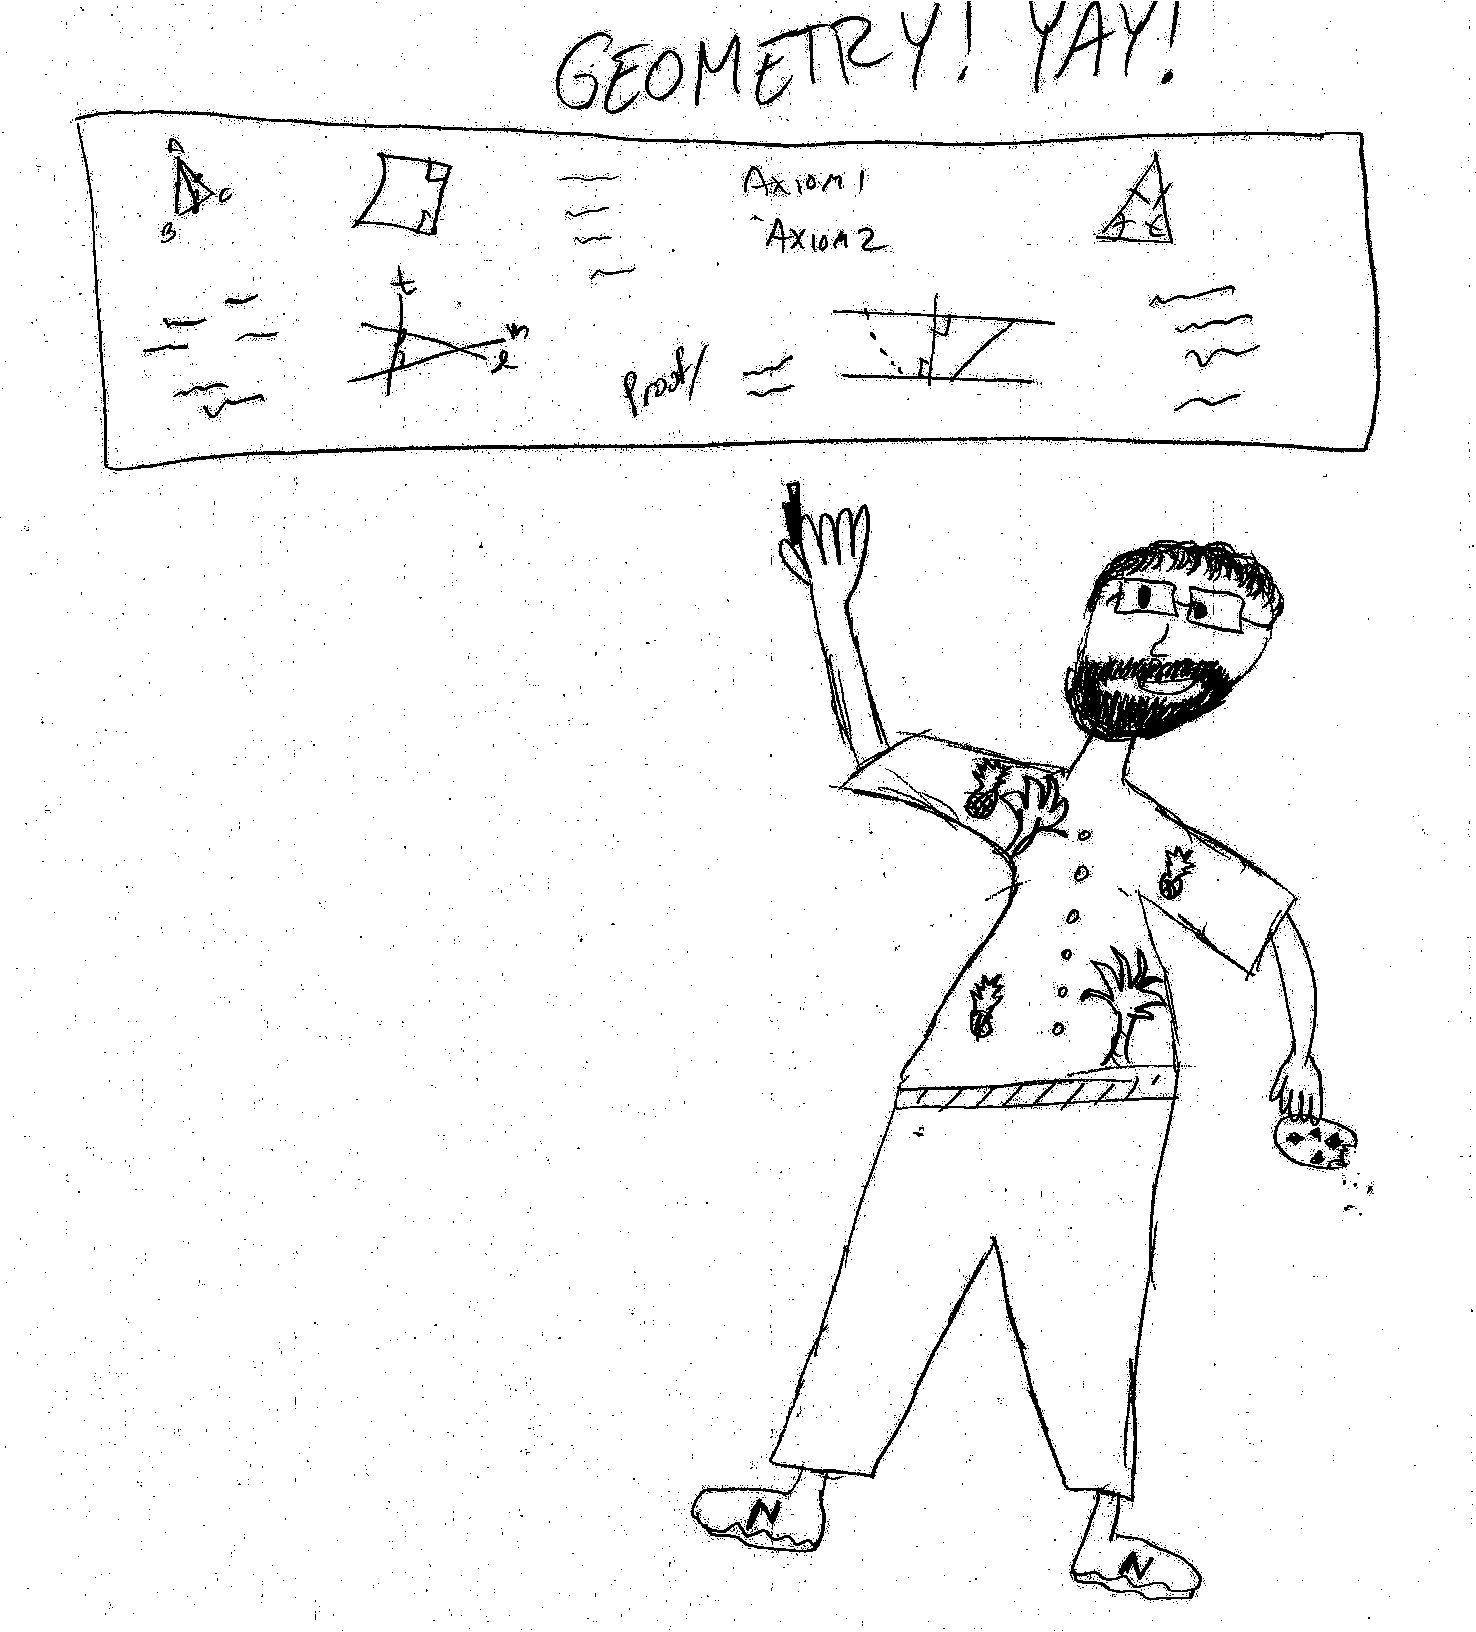 GEOMETRY! YAY!
A
B
C
Axiom 1
Axiom 2
t
m
l
Proof/
N
N